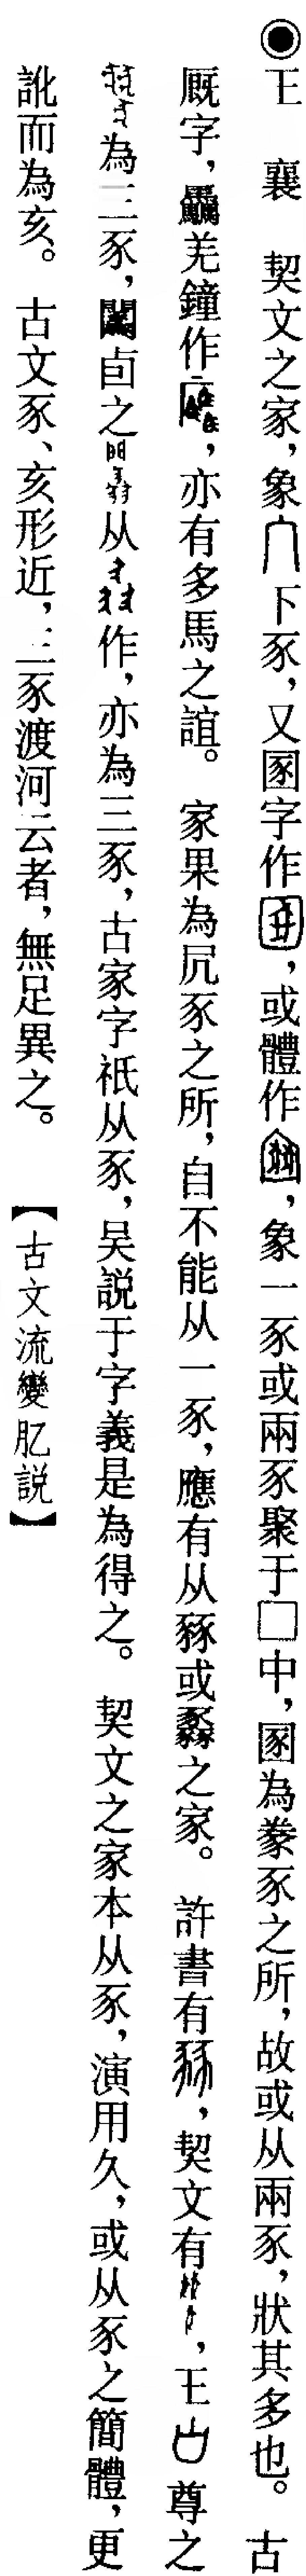 ◉王 襄 契文之家，象宀下豕，又圂字作，或體作，象一豕或兩豕聚于囗中，圂為豢豕之所，故或从兩豕，狀其多也。 古
厩字，驫羌鐘作，亦有多馬之誼。 家果為凥豕之所，自不能从一豕，應有从豩或之家。 許書有豩，契文有，王尊之
為三豕，闗卣之从作，亦為三豕，古家字祇从豕，吴説于字義是為得之。 契文之家本从豕，演用久，或从豕之簡體，更
訛而為亥。 古文豕、亥形近，三豕渡河云者，無足異之。 【古文流變肊説】